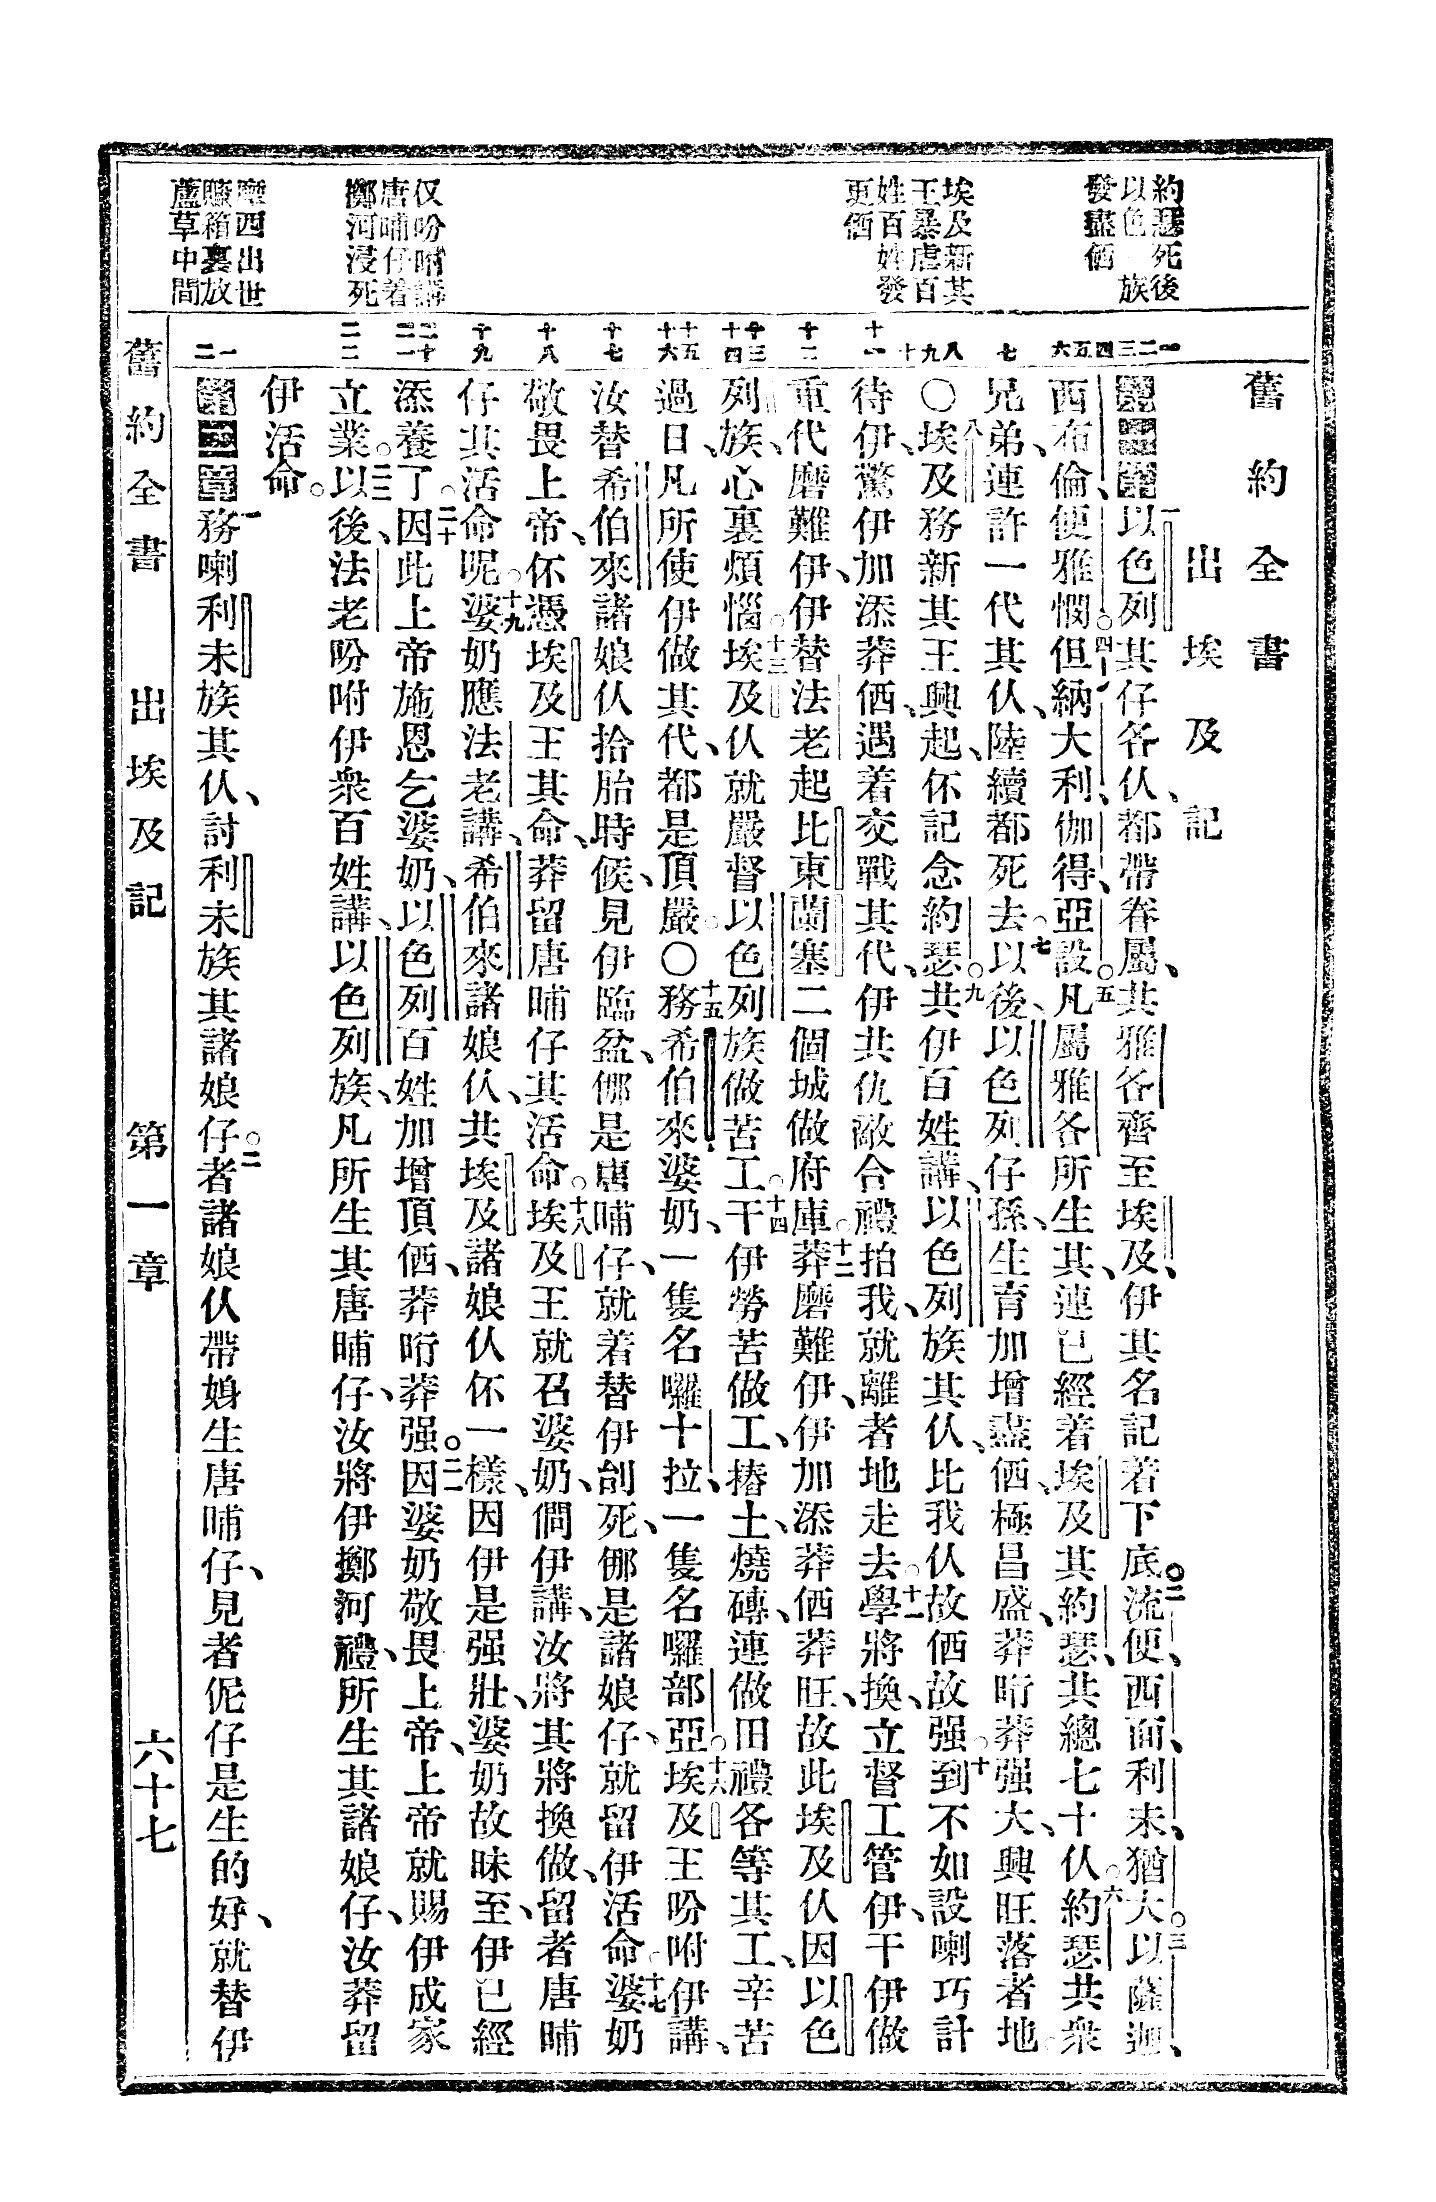 舊約全書
出埃及記
約瑟死後
以色 族
發盡価
埃及新其
王暴虐百
姓百姓發
更価
仅吩咐講
唐晡仔着
擲河浸死
摩西出世
賺箱裏放
蘆草中間
一二三四五六 七 八九十 十一 十二 十三十四 十五十六 十七 十八 十九 二十二一 二二 一二
第一章一以色列其仔各仈都帶眷屬、共雅各齊至埃及、伊其名記着下底。二流便、西面、利未、猶大。三以薩迦、
西布倫、便雅憫。四但、納大利、伽得、亞設。五凡屬雅各所生其、連已經着埃及其約瑟、共總七十仈。六約瑟共衆
兄弟、連許一代其仈、陸續都死去。七以後、以色列仔孫、生育加增盡価、極昌盛、莽盷莽强大、興旺落者地。
〇八埃及務新其王興起、伓記念約瑟。九共伊百姓講、以色列族其仈、比我仈故価故强。十到不如設喇巧計
待伊、驚伊加添莽価、遇着交戰其代、伊共仇敵合禮拍我、就離者地走去。十一學將換、立督工管伊、干伊做
重代磨難伊、伊替法老起比東蘭塞二個城做府庫。十二莽磨難伊、伊加添莽価莽旺、故此埃及仈因以色
列族、心裏煩惱。十三埃及仈就嚴督以色列族做苦工。十四干伊勞苦做工、摏土、燒磚、連做田禮各等其工、辛苦
過日、凡所使伊做其代、都是頂嚴。〇十五務希伯來婆奶、一隻名囉十拉、一隻名囉部亞。十六埃及王吩咐伊講、
汝替希伯來諸娘仈拾胎時候、見伊臨盆、倻是唐晡仔、就着替伊刣死、倻是諸娘仔、就留伊活命。十七婆奶
敬畏上帝、伓憑埃及王其命、莽留唐晡仔其活命。十八埃及王就召婆奶、問伊講、汝將其將換做、留者唐晡
仔其活命呢。十九婆奶應法老講、希伯來諸娘仈、共埃及諸娘仈伓一樣、因伊是强壯、婆奶故昧至、伊已經
添養了。二十因此上帝施恩乞婆奶、以色列百姓加增頂価、莽盷莽强。二一因婆奶敬畏上帝、上帝就賜伊成家
立業。二二以後、法老吩咐伊衆百姓講、以色列族、凡所生其唐晡仔、汝將伊擲河禮、所生其諸娘仔、汝莽留
伊活命。
第二章一務喇利未族其仈、討利未族其諸娘仔。二者諸娘仈帶娚生唐晡仔、見者伲仔是生的好、就替伊
舊約全書 出埃及記 第一章 六十七